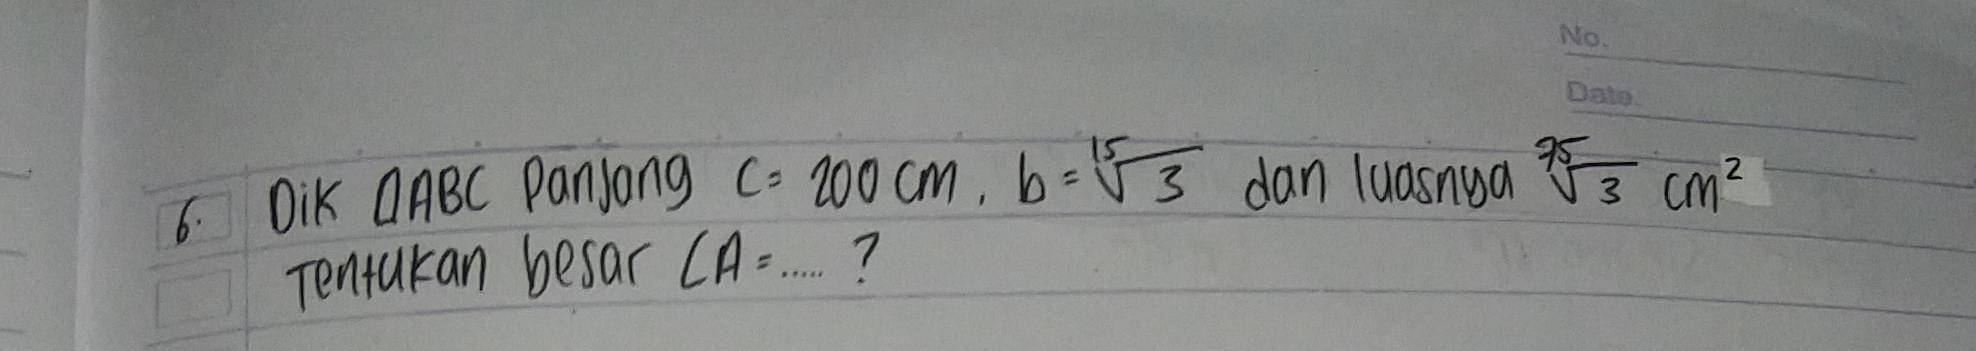 No.
Date.
6. Dik ΔABC Panjang c = 200 cm, b = ¹⁵√3 dan luasnya ⁷⁵√3 cm²
Tentukan besar ∠A = ..... ?